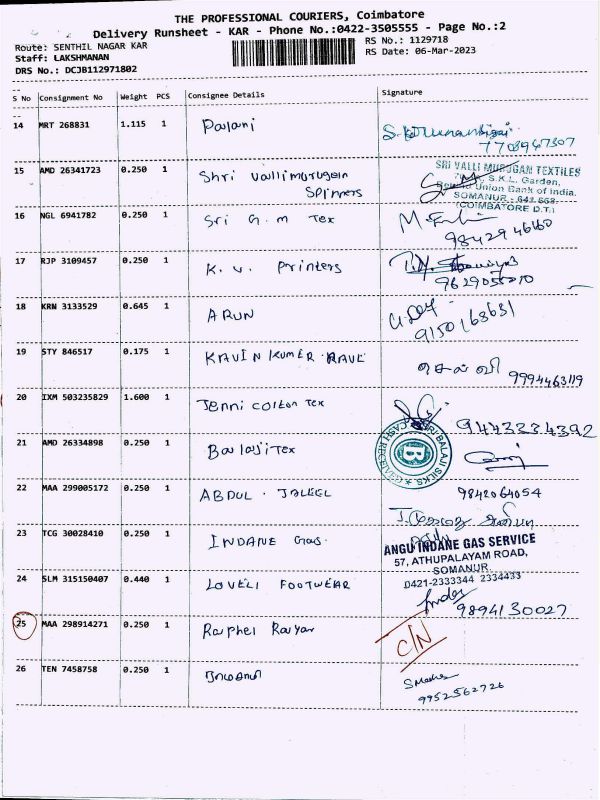 THE PROFESSIONAL COURIERS, Coimbatore
Delivery Runsheet - KAR - Phone No.:0422-3505555 - Page No.:2
Route: SENTHIL NAGAR KAR
RS No.: 1129718
Staff: LAKSHMANAN
RS Date: 06-Mar-2023
DRS No.: DCJB112971802
S No Consignment No Weight PCS Consignee Details Signature
14 MRT 268831 1.115 1 Palani
7708967307
15 AMD 26341723 0.250 1 Shri Vallimurugan Spinners
SRI VALLI MURUGAN TEXTILES
S.K.L. Garden,
Union Bank of India.
SOMANUR - 641 668.
(COIMBATORE D.T.)
16 NGL 6941782 0.250 1 Sri G.m Tex
98429 46660
17 RJP 3109457 0.250 1 K. V. Printers
9629055010
18 KRN 3133529 0.645 1 ARUN
9150163631
19 STY 846517 0.175 1 KAVIN KUMER
செல்வி 9994463119
20 IXM 503235829 1.600 1 Jenni Cotton Tex
9443334392
21 AMD 26334898 0.250 1 Balaji Tex
SRI BALAJI SILKS
B
22 MAA 299005172 0.250 1 ABDUL . JALEEL
9842064054
23 TCG 30028410 0.250 1 INDANE Gas.
ANGU INDANE GAS SERVICE
57, ATHUPALAYAM ROAD,
SOMANUR.
0421-2333344 2334433
24 SLM 315150407 0.440 1 LOVELI FOOTWEAR
9894130027
25 MAA 298914271 0.250 1 Raphel Rayar C/N
26 TEN 7458758 0.250 1
9952562726